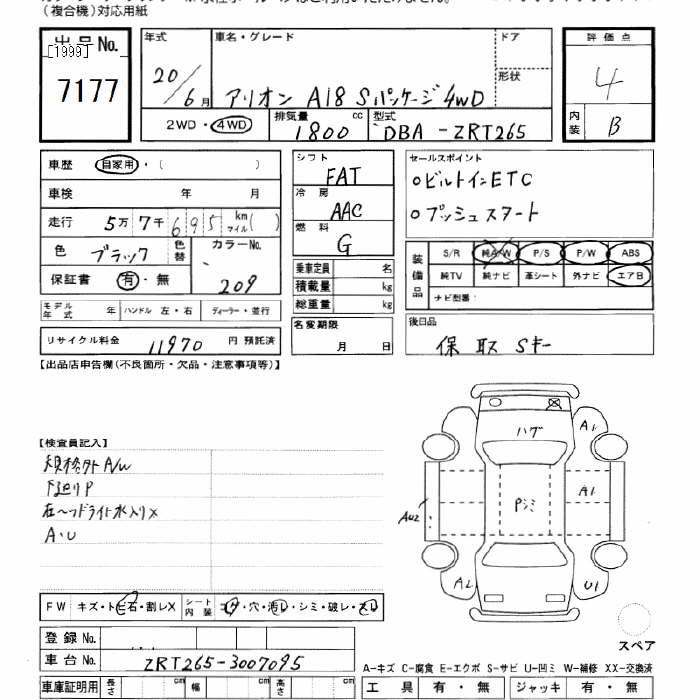 （複合機）対応用紙
出品No. 年式 車名・グレード ドア 評価点
[1999] 形状
7177 20/6月 アリオン A18 Sパッケージ 4WD 4
2WD・4WD 排気量 1800 cc 型式 DBA-ZRT265 内装 B
車歴 自家用・（ ） シフト FAT セールスポイント
車検 年 月 冷房 AAC ○ビルトインETC
走行 5万7千695 km マイル（ ） 燃料 G ○プッシュスタート
色 ブラック 色替 カラーNo. 209
保証書 有・無
乗車定員 名
積載量 kg
総重量 kg
装備品 S/R 純A/W P/S P/W ABS
純TV 純ナビ 革シート 外ナビ エアB
ナビ型番:
モデル年式 年 ハンドル 左・右 ディーラー・並行
名変期限 月 日
後日品
保 取 Sキー
リサイクル料金 11970 円 預託済
【出品店申告欄(不良箇所・欠品・注意事項等)】
【検査員記入】
規格外A/W
下廻りP
左ヘッドライト水入りX
A・U
ハゲ
A1
Pシミ
A1
AU2
A2
U1
FW キズ・トビ石・割レX シート内装 コゲ・穴・汚レ・シミ・破レ・スレ
スペア
登録No.
車台No. ZRT265-3007095
A-キズ C-腐食 E-エクボ S-サビ U-凹ミ W-補修 XX-交換済
車庫証明用 長さ cm 幅 cm 高さ cm 工具 有・無 ジャッキ 有・無